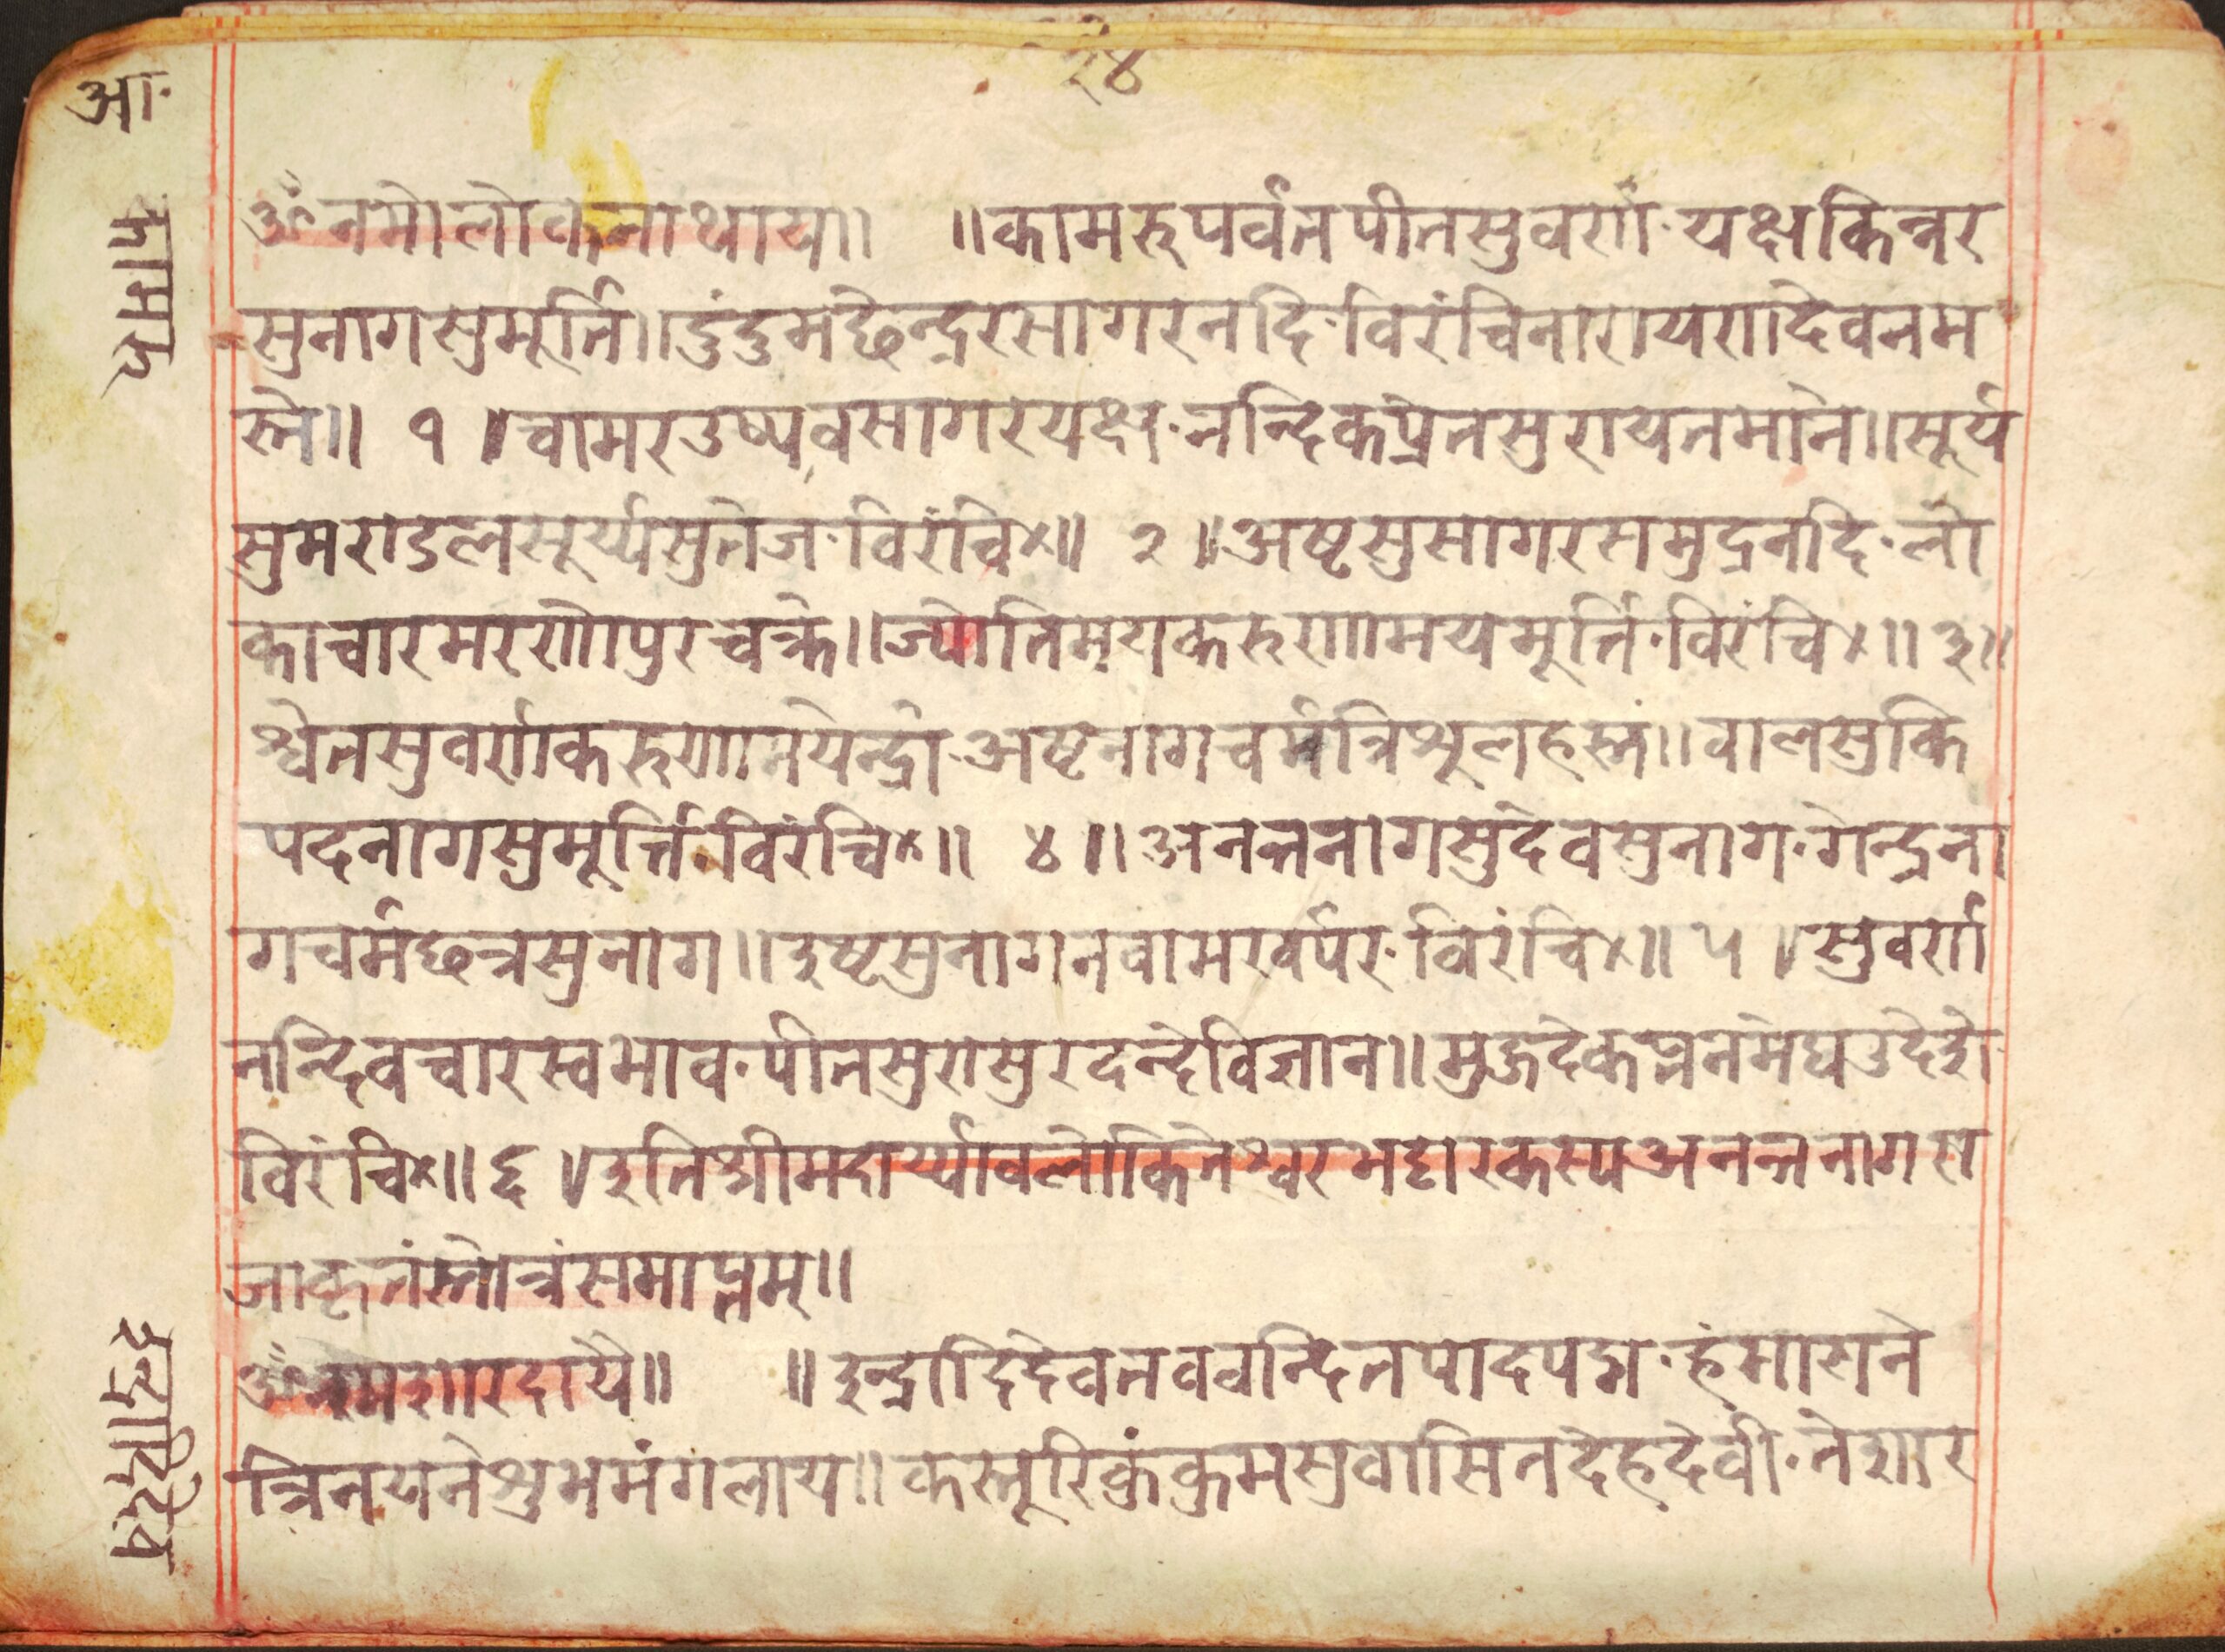 २४
आ॰
कामरु
ॐ नमो लोकनाथाय॥ ॥कामरुपर्वतपीतसुवर्णा॰यक्षकिन्नर
सुनागसुमूर्ति॥डुंडुमछेन्द्ररसागरनदि॰विरंचिनारायणदेवनम
स्ते॥ १ ॥चामरउष्पवसागरयक्ष॰नन्दिकंप्रेतसुरायनमोन॥सूर्य
सुमराडलसूर्य्यसुतेज॰विरंचि×॥ २ ॥अष्टसुसागरसमुद्रनदि॰लो
काचारमरणोपुरचक्रे॥ज्योतिमयकरुणामयमूर्त्ति॰विरंचि×॥ ३॥
श्वेतसुवर्णकरुणामयेन्द्रो॰अष्टनागचर्मत्रिशूलहस्तं॥वालसुकि
पदनागसुमूर्त्ति॰विरंचि×॥ ४ ॥अनन्तनागसुदेवसुनाग॰गेन्द्रना
गचर्मछत्रसुनाग॥दुष्टसुनागनवामरवर्परु॰विरंचि×॥ ५ ॥सुवर्ण
नन्दिवचारस्वभाव॰पीतसुरासुरदन्देविजान॥मुञ्जदेकप्लनमेघउदेइो॰
विरंचि×॥ ६ ॥इतिश्रीमदार्य्यावलोकितेश्वरभट्टारकस्यअनन्तनागरा
जाकृतंस्तोत्रंसमाप्तम्॥
ॐ नमशारदायै॥ ॥इन्द्रादिदेवतववन्दितपादपद्म॰हंमाशने
त्रिनयनेशुभमंगलाय॥कस्तूरिकुंकुमसुवासितदेहदेवी॰तेशार
इन्द्रादिदेव